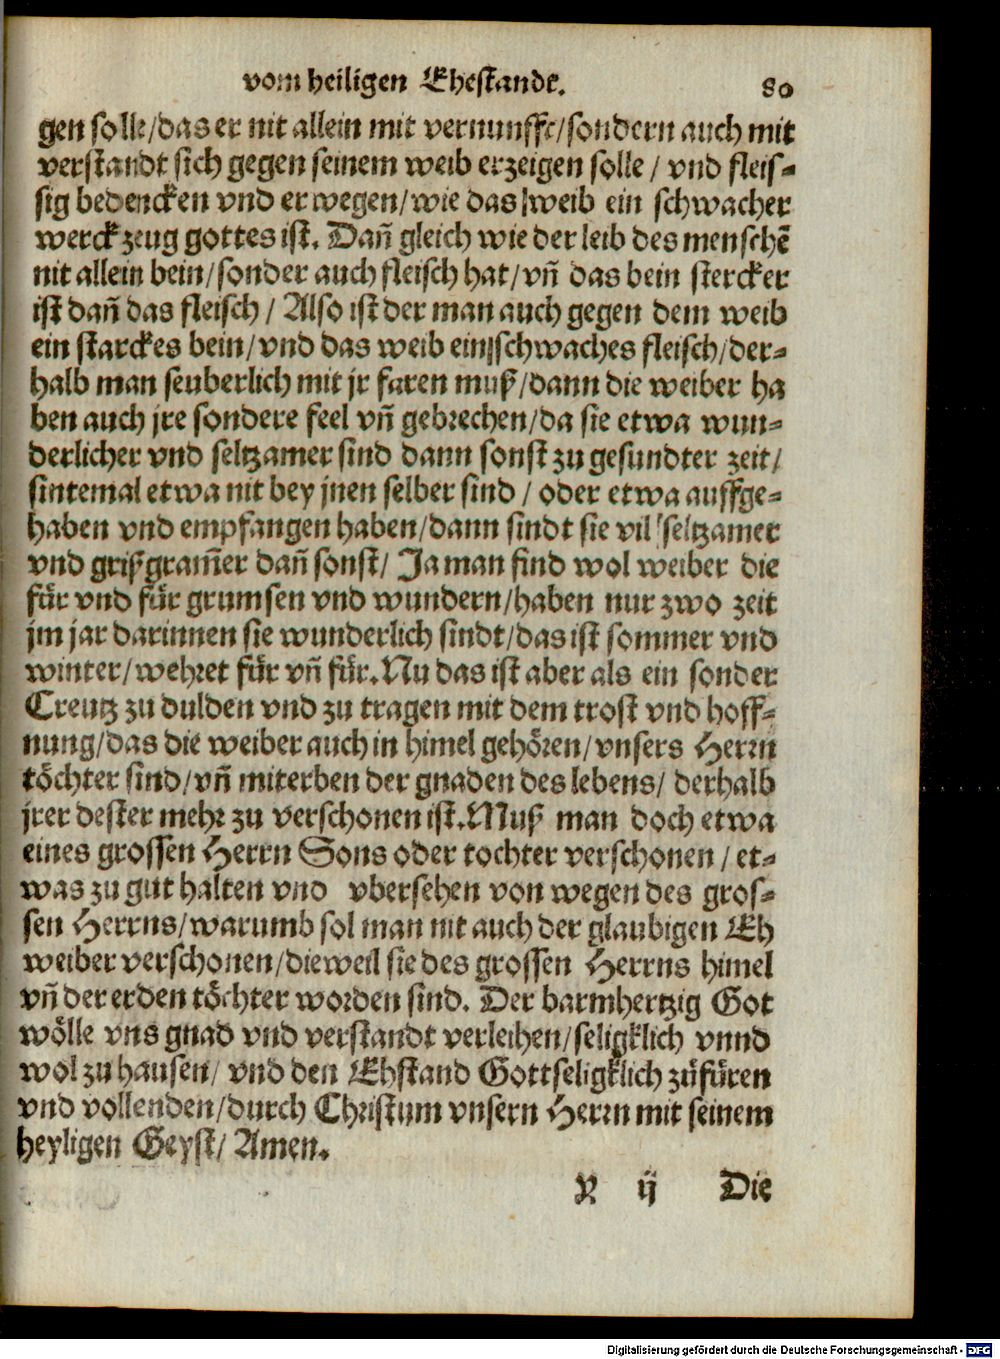 vom heiligen Ehestande. 80
gen solle/das er nit allein mit vernunfft/sondern auch mit
verstandt sich gegen seinem weib erzeigen solle / vnd fleis-
sig bedencken vnd erwegen/wie das weib ein schwacher
werckzeug gottes ist. Dañ gleich wie der leib des menschẽ
nit allein bein/sonder auch fleisch hat/vñ das bein stercker
ist dañ das fleisch / Also ist der man auch gegen dem weib
ein starckes bein/vnd das weib ein schwaches fleisch/der-
halb man seuberlich mit jr faren muß/dann die weiber ha
ben auch jre sondere feel vñ gebrechen/da sie etwa wun-
derlicher vnd seltzamer sind dann sonst zu gesundter zeit/
sintemal etwa nit bey jnen selber sind / oder etwa auffge-
haben vnd empfangen haben/dann sindt sie vil seltzamer
vnd grißgram̃er dañ sonst/ Ja man find wol weiber die
für vnd für grumsen vnd wundern/haben nur zwo zeit
jm jar darinnen sie wunderlich sindt/das ist sommer vnd
winter/wehret für vñ für. Nu das ist aber als ein sonder
Creutz zu dulden vnd zu tragen mit dem trost vnd hoff-
nung/das die weiber auch in himel gehören/vnsers Herrn
töchter sind/vñ miterben der gnaden des lebens/ derhalb
jrer dester mehr zu verschonen ist. Muß man doch etwa
eines grossen Herrn Sons oder tochter verschonen / et-
was zu gut halten vnd vbersehen von wegen des gros-
sen Herrns/warumb sol man nit auch der glaubigen Eh
weiber verschonen/dieweil sie des grossen Herrns himel
vñ der erden töchter worden sind. Der barmhertzig Got
wölle vns gnad vnd verstandt verleihen/seligklich vnnd
wol zu hausen/ vnd den Ehstand Gottseligklich zůfüren
vnd vollenden/durch Christum vnsern Herrn mit seinem
heyligen Geyst/ Amen.
X ij Die
Digitalisierung gefördert durch die Deutsche Forschungsgemeinschaft - DFG